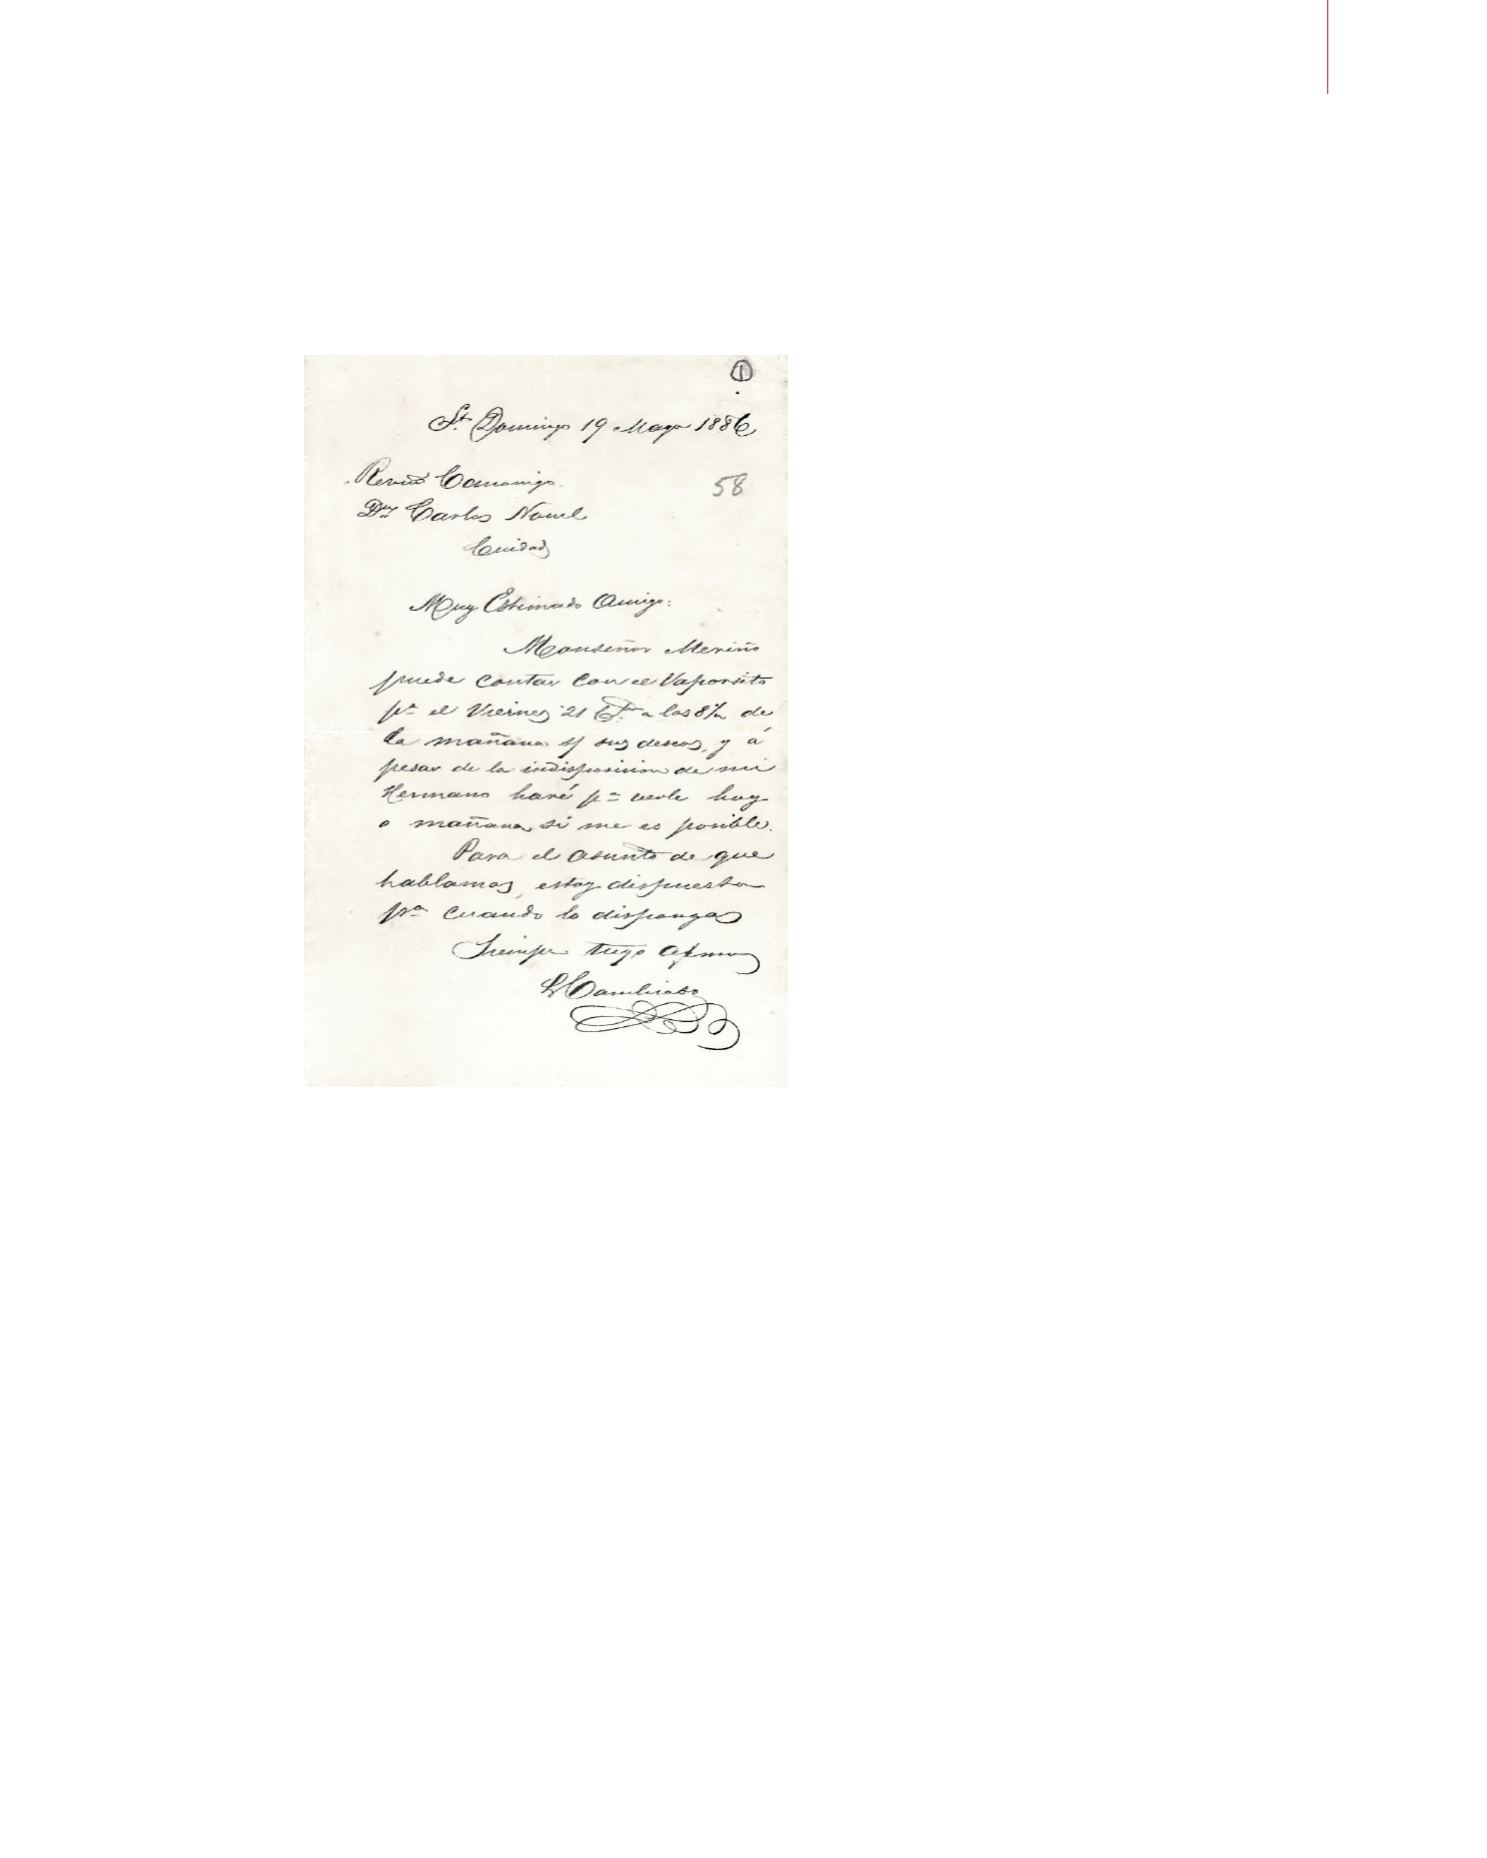 1
St. Domingo 19 Mayo 1886
58
Revdo Canonigo
Dn Carlos Nouel
Ciudad
Muy Estimado Amigo:
Monseñor Meriño
puede contar con el Vaporsito
pa el Viernes 21 a las 8 de
la mañana sus deseos, y á
pesar de la indisposicion de mi
Hermano haré pa verle hoy
o mañana si me es posible.
Para el asunto de que
hablamos, estoy dispuesto
pa cuando lo dispongas
Siempre tuyo afmo
Cambiaso